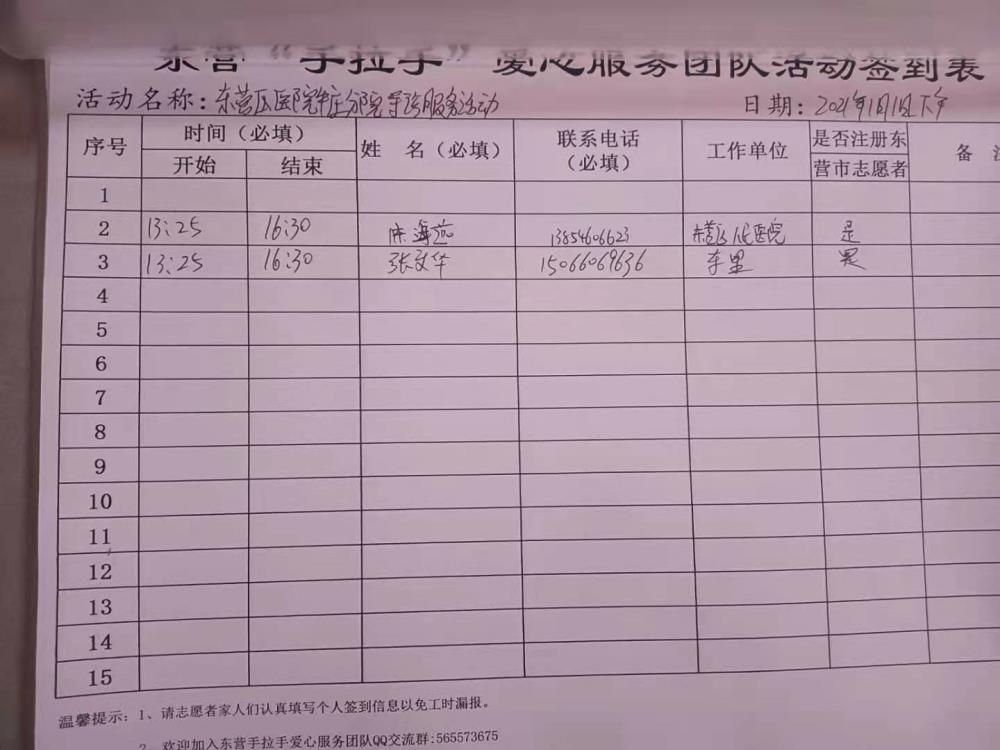 东营“手拉手”爱心服务团队活动签到表
活动名称：东营区医院 分院导医服务活动 日期：2021年1月1日下午
序号 时间（必填） 姓 名（必填） 联系电话（必填） 工作单位 是否注册东营市志愿者 备
开始 结束
1
2 13:25 16:30 海 13854606623 东营区人民医院 是
3 13:25 16:30 张文华 15066069636 是
4
5
6
7
8
9
10
11
12
13
14
15
温馨提示：1、请志愿者家人们认真填写个人签到信息以免工时漏报。
2、欢迎加入东营手拉手爱心服务团队QQ交流群:565573675